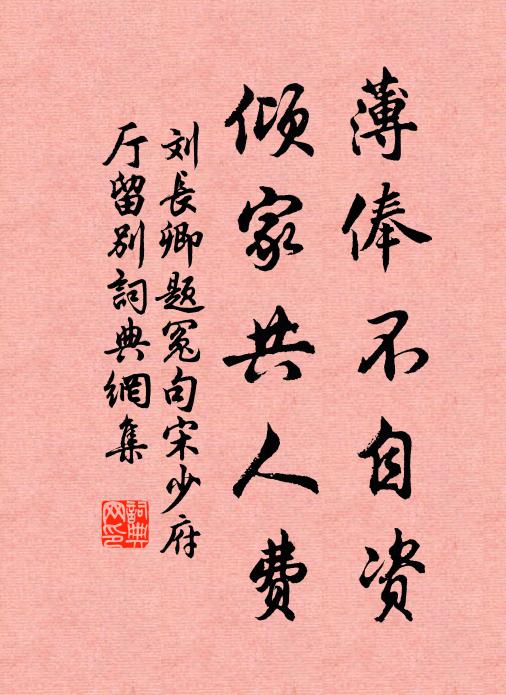 薄俸不自资
倾家共人费
刘長卿题冤句宋少府
厅留别詞典網集
詞典
网印